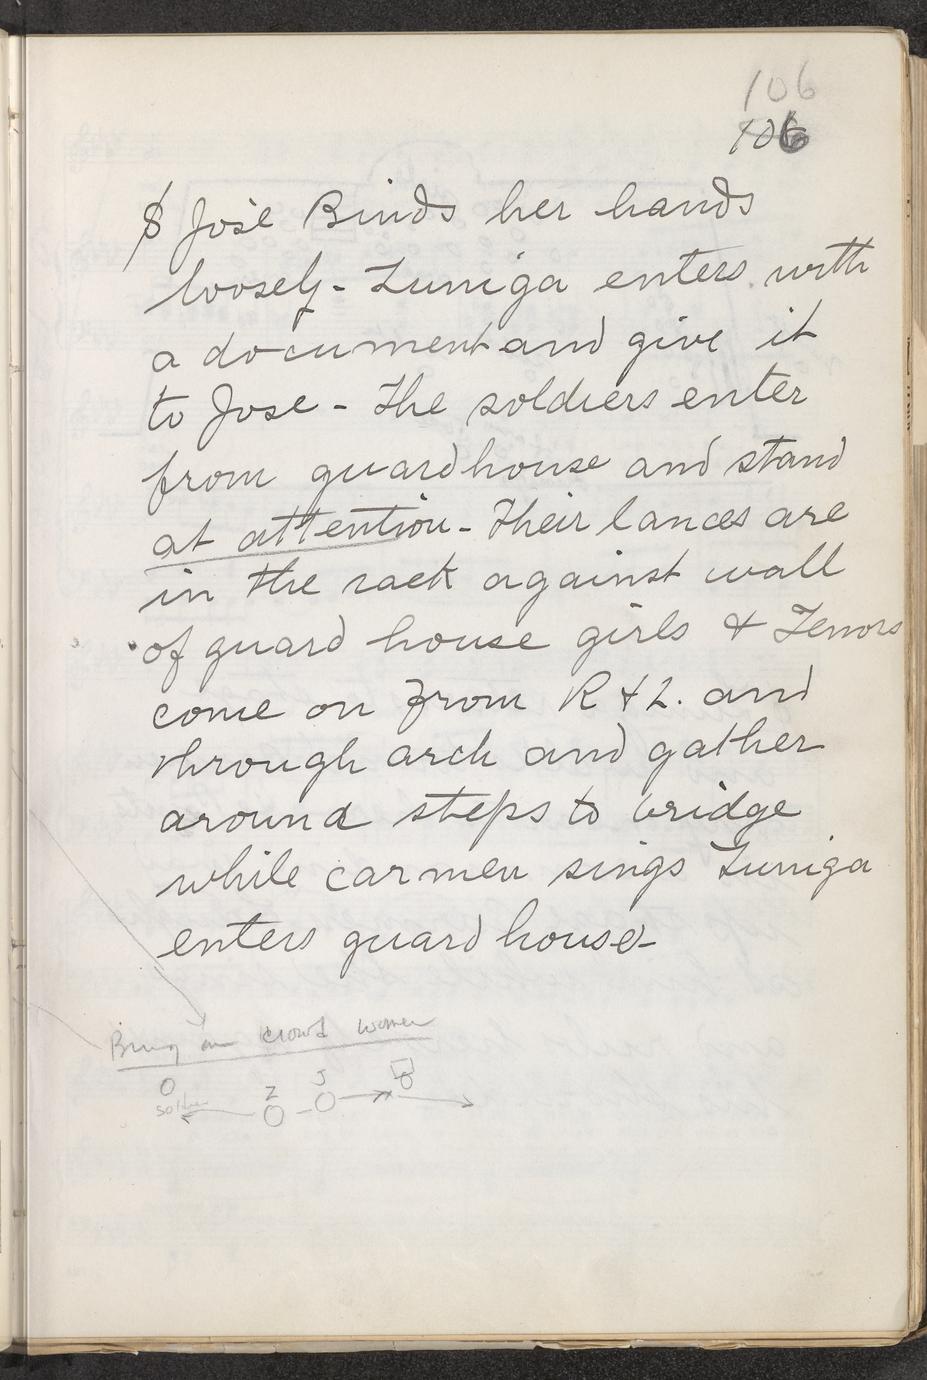 106
106
$ José Binds her hands
loosely - Zuniga enters with
a document and give it
to Jose - The soldiers enter
from guardhouse and stand
at attention - Their lances are
in the rack against wall
of guard house girls & Tenors
come on from R & L. and
through arch and gather
around steps to bridge
while carmen sings Zuniga
enters guardhouse -
Bring on crowd women
J
Z